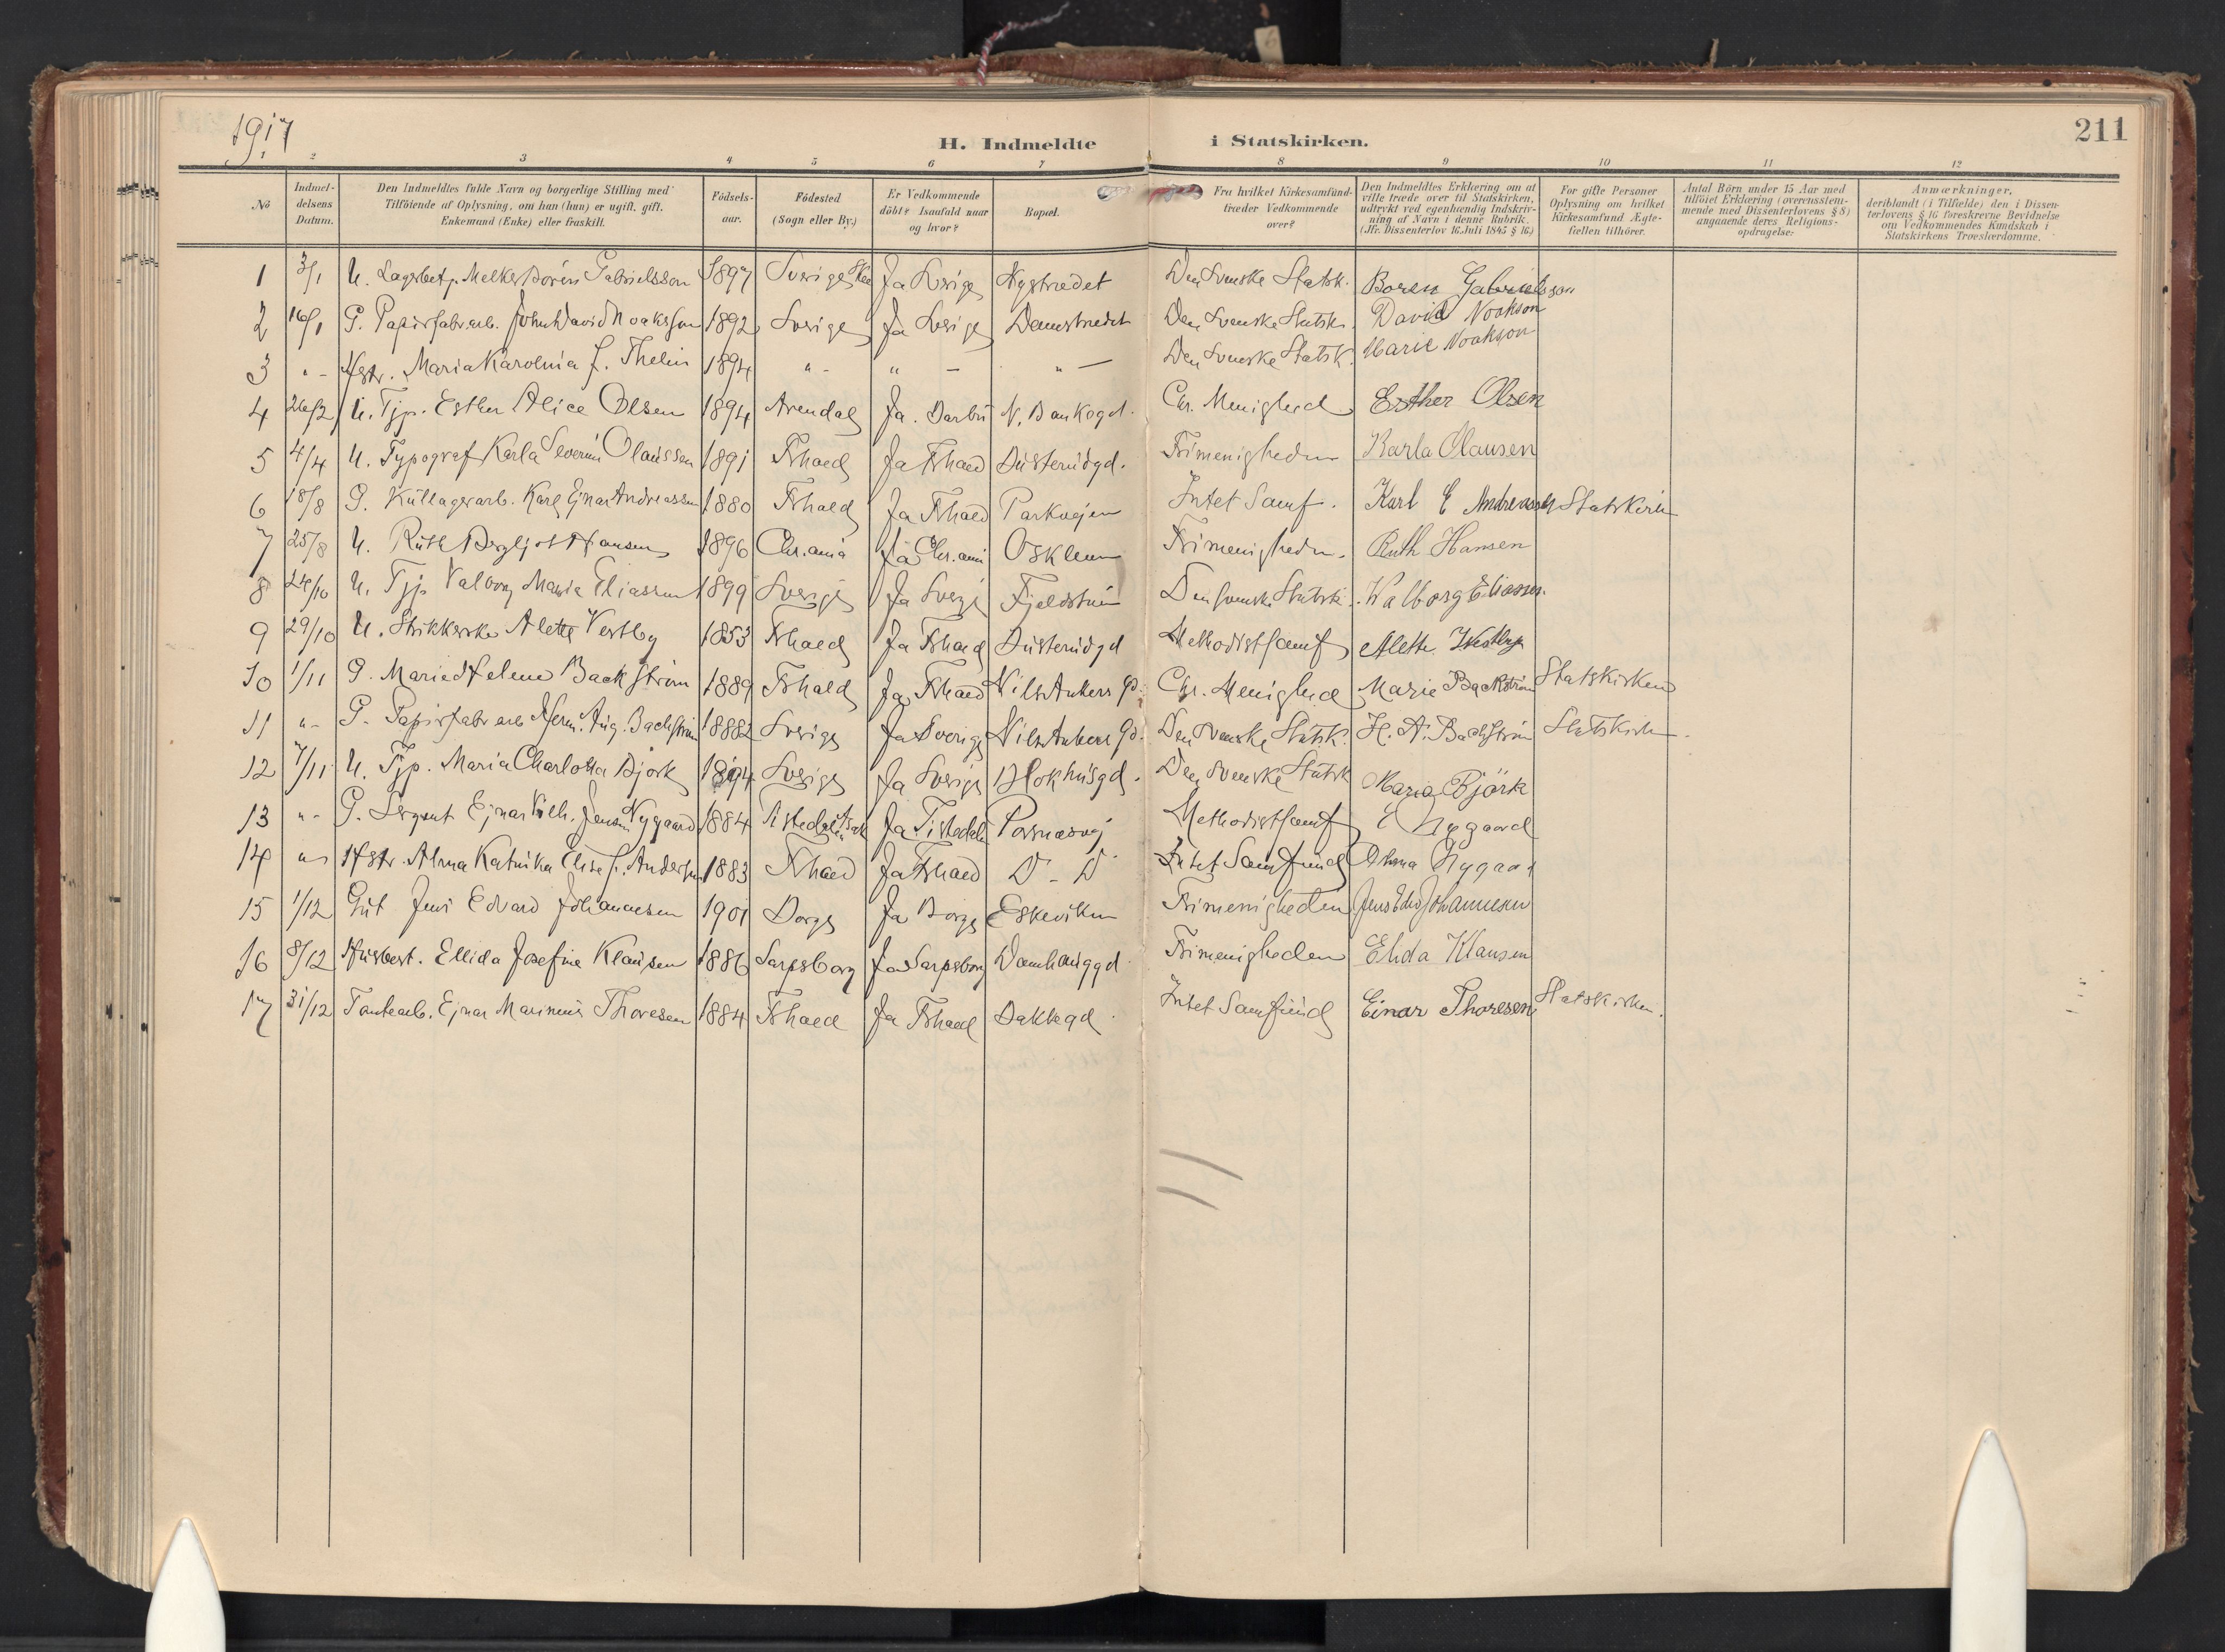 1917
H. Indmeldte i Statskirken.
211
1 2 3 4 5 6 7 8 9 10 11 12
No
Indmel-
delsens
Datum.
Den Indmeldtes fulde Navn og borgerlige Stilling med
Tilföiende af Oplysning, om han (hun) er ugift, gift,
Enkemand (Enke) eller fraskilt.
Födsels-
aar.
Födested
(Sogn eller By.)
Er Vedkommende
döbt? Isaafald naar
og hvor?
Bopæl.
Fra hvilket Kirkesamfund
træder Vedkommende
over?
Den Indmeldtes Erklæring om at
ville træde over til Statskirken,
udtrykt ved egenhændig Indskriv-
ning af Navn i denne Rubrik.
(Jfr. Dissenterlov 16. Juli 1845 § 16.)
For gifte Personer
Oplysning om hvilket
Kirkesamfund Ægte-
fællen tilhörer.
Antal Börn under 15 Aar med
tilföiet Erklæring (overensstem-
mende med Dissenterlovens § 8)
angaaende deres Religions-
opdragelse:
Anmærkninger,
deriblandt (i Tilfælde) den i Dissen-
terlovens § 16 foreskrevne Bevidnelse
om Vedkommendes Kundskab i
Statskirkens Troeslærdomme.
1 3/1 U. Lagerbetj. Melker Boren Gabrielsson 1897 Sverige Ja Sverige Nystredet Den Svenske Statsk. Boren Gabrielsson
2 16/1 G. Papirfabrarb. John David Noaksson 1892 Sverige Ja Sverige Damstredet Den Svenske Statsk. David Noakson
3 " - Hstr. Maria Karolina f. Thelin 1894 " - " - " - Den Svenske Statsk. Marie Noakson
4 26/2 U. Tjp. Esther Alice Olsen 1894 Arendal Ja. Barbu N. Bankegd. Chr. Menighed Esther Olsen
5 4/4 U. Typograf Karla Severin Olaussen 1891 Fhald Ja Fhald Busterudgd. Frimenigheden Karla Olausen
6 18/8 G. Kullagerarb. Karl Ejnar Andreassen 1880 Fhald Ja Fhald Parkvejen Intet Samf. Karl E Andreassen Statskirken
7 25/8 U. Ruth Bergljot Hansen 1896 Chr.ania Ja Chr.ania Oskleven Frimenigheden. Ruth Hansen
8 24/10 U. Tjp Valborg Maria Eliassen 1899 Sverige Ja Sverige Fjeldstuen Den svenske Statski. Walborg Eliassen.
9 29/10 U. Strikkerske Alette Vestby 1853 Fhald Ja Fhald Busterudgd Methodistsamf Alette Vestby
10 1/11 G. Marie Helene Backström 1889 Fhald Ja Fhald Nils Ankers Gd. Chr. Menighed Marie Backström Statskirken
11 " - G. Papirfabrarb Herm. Aug. Backström 1882 Sverige Ja Sverige Nils Ankers Gd. Den Svenske Statsk. H. A. Backström Statskirken
12 7/11 U. Tjp. Maria Charlotta Björk 1894 Sverige Ja Sverige Blokhusgd. Den Svenske Statsk Maria Björk
13 " - G. Sergent Ejnar Vilh. Jensen Nygaard 1884 Tistedalen Ja Tistedalen Porsnæsvej Methodistsamf E Nygaard
14 " - Hstr. Alma Katinka Elise f. Andersen 1883 Fhald Ja Fhald D - D Intet Samfund Alma Nygaard
15 1/12 Gut Jens Edvard Johannesen 1901 Borge Ja Borge Eskeviken Frimenigheden Jens Edv Johannesen
16 8/12 Husbest. Ellida Josefine Klausen 1886 Sarpsborg Ja Sarpsborg Damhauggd Frimenigheden Elida Klausen
17 31/12 Tomtearb. Ejnar Marinius Thoresen 1884 Fhald Ja Fhald Bakkegd. Intet Samfund Einar Thoresen Statskirken.